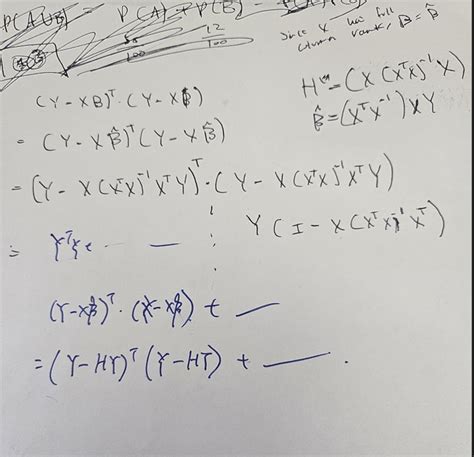 P(A∪B) = P(A) + P(B) -
56/100 12/100
Since X has full
column rank, β = β̂
H = (X (XᵀX)⁻¹ X)
β̂ = (XᵀX⁻¹) XY
(Y - XB)ᵀ · (Y - Xβ)
= (Y - Xβ̂)ᵀ (Y - Xβ̂)
= (Y - X(XᵀX)⁻¹XᵀY)ᵀ · (Y - X(XᵀX)⁻¹XᵀY)
Y (I - X(XᵀX)⁻¹Xᵀ)
(Y-Xβ̂)ᵀ · (Y-Xβ̂) + —
= (Y-HY)ᵀ (Y-HY) + — .